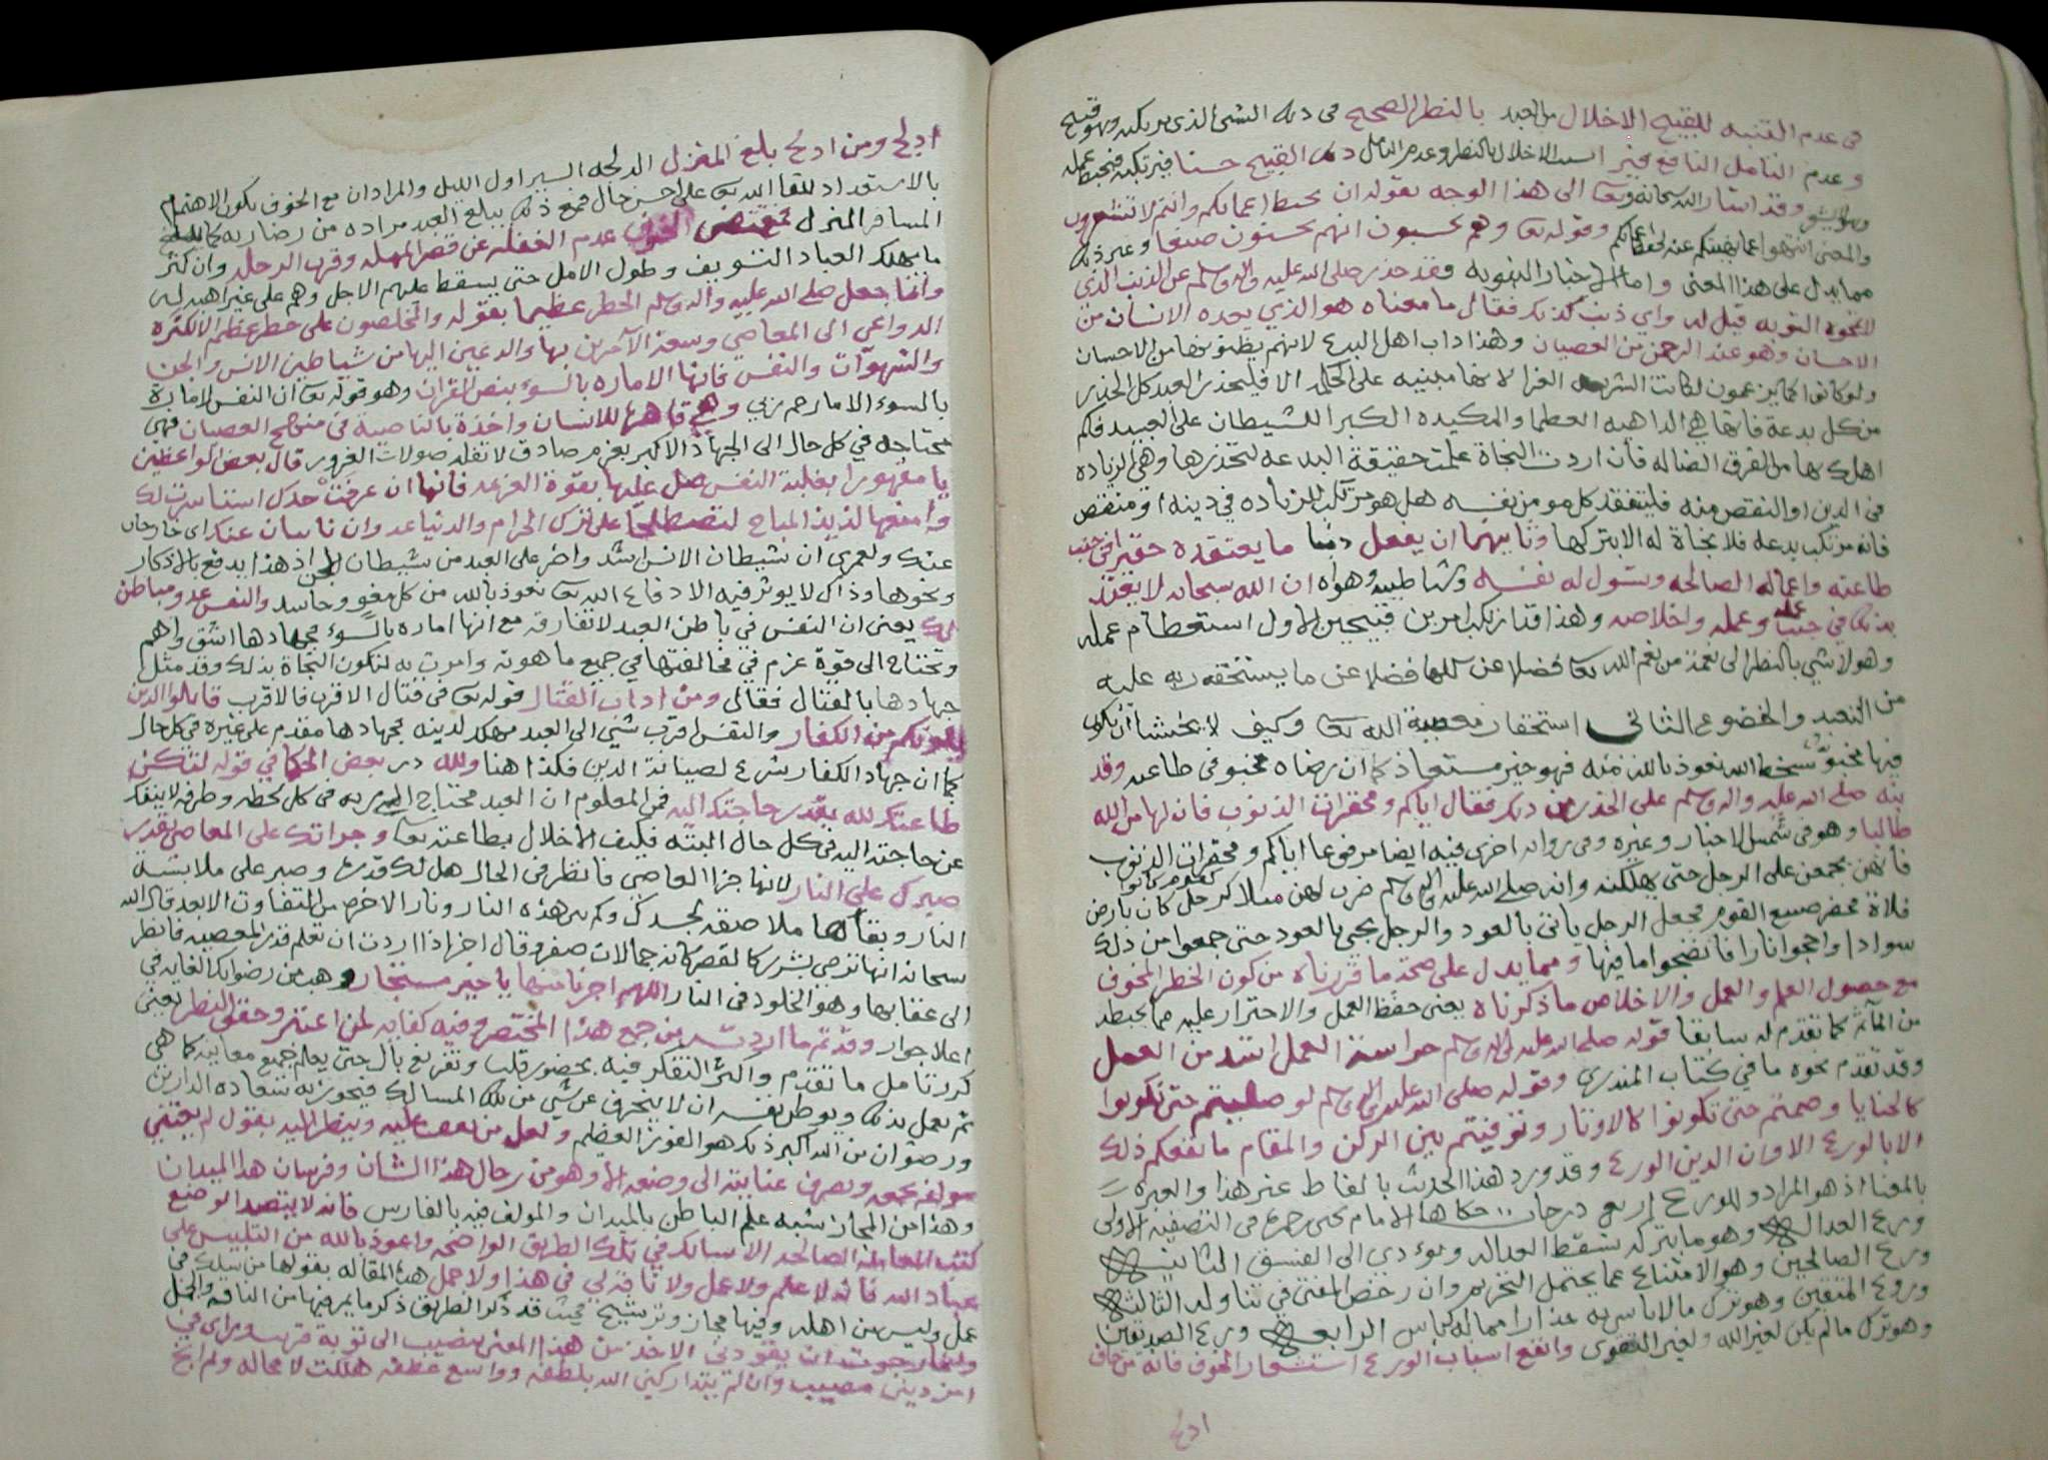 في عدم التنبه للقبيح الاخلال من العبد بالنظر الصحيح في دية الشي الذي يرتكبه وهو قبيح
وعدم التامل النافع فيرا السبب الاخلال بالنظر وعدم التامل القبيح حسنا فيرتكبه فيحبط عمله
وقد اشار الله سبحانه وتعا الى هذا الوجه بقوله ان تحبط اعمالكم وانتم لا تشعرون
والمعنى انتهوا عما نهيتكم عنه لحفظ اعمالكم وقوله تعا وهم يحسبون انهم يحسنون صنعا وغير ذلك
مما يدل على هذا المعنى واما الاخبار النبويه فقد حذر صلى الله عليه واله وسلم عن الذنب الذي
لا تمحوه التوبه قيل له واي ذنب كذلك فقال ما معناه هو الذي يعده الانسان من
الاحسان وهو عند الرحمن من العصيان وهذا داب اهل البدع لانهم يظنونها من الاحسان
ولو كانوا كما يزعمون لكانت الشريعه الغرا لانها مبنيه على الحكمه الا فليحذر العبد كل الحذر
من كل بدعة فانها هي الداهيه العظما والمكيده الكبرا للشيطان على العبيد فكم
اهلك بها من الفرق الضاله فان اردت النجاة علمت حقيقة البدعه لتحذرها وهي الزياده
في الدين او النقص منه فليتفقد كل مومن نفسه هل هو مرتكب للزياده في دينه او منتقص
فانه مرتكب بدعه فلا نجاة له الا بتركها وثانيهما ان يفعل ذنبا ما يعتقده حقيرا في جنب
طاعته واعماله الصالحه وتسول له نفسه وشياطينه وهواه ان الله سبحانه لا يعتد
بذلك في جنب علمه وعمله واخلاصه وهذا قد ارتكب امرين قبيحين الاول استعظام عمله
وهو لا شي بالنظر الى نعمة من نعم الله تعا فضلا عن كلها فضلا عن ما يستحقه ربه عليه
من التعبد والخضوع الثاني استحقار معصية الله تعا وكيف لا يخشا ان يكون
فيها مخبو سخط الله نعوذ بالله منه فهو خير مستعاذ كما ان رضاه مخبو في طاعته وقد
نبه صلى الله عليه واله وسلم على الحذر من ذلك فقال اياكم ومحقرات الذنوب فان لها من الله
طالبا وهو في شمس الاخبار وغيره وفي رواية اخرى فيه ايضا مرفوعا اياكم ومحقرات الذنوب
فانهن يجمعن على الرجل حتى يهلكنه وانه صلى الله عليه واله وسلم ضرب لهن مثلا كرجل كان بارض
فلاة فحضر صنيع القوم فجعل الرجل ياتي بالعود والرجل يجي بالعود حتى جمعوا من ذلك
سوادا واججوا نارا فانضجوا ما فيها ومما يدل على صحة ما قررناه من كون الخطر المخوف
مع حصول العلم والعمل والاخلاص ما ذكرناه يعني حفظ العمل والاحتراز عليه مما يحبطه
من المآثم كما تقدم له سابقا قوله صلى الله عليه واله وسلم حراسة العمل اشد من العمل
وقد تقدم نحوه ما في كتاب المنذري وقوله صلى الله عليه واله وسلم لو صليتم حتى تكونوا
كالحنايا وصمتم حتى تكونوا كالاوتار وتوفيتم بين الركن والمقام ما نفعكم ذلك
الا بالورع الا وان الدين الورع وقد ورد هذا الحديث بالفاظ غير هذا والعبره
بالمعنا اذ هو المراد وللورع اربع درجات حكاها الامام يحي بن حمزه في التصفيه الاولى
ورع العداله وهو ما بتركه تسقط العداله ويؤدي الى الفسق الثانيه
ورع الصالحين وهو الامتناع عما يحتمل التحريم وان رخص المفتي في تناوله الثالثه
ورع المتقين وهو ترك ما لا باس به حذارا مما له باس الرابعه ورع الصديقين
وهو ترك ما لم يكن لغير الله ولغير التقوى وانفع اسباب الورع استشعار الخوف فانه من خاف
ادلج
ادلج ومن ادلج بلغ المنزل الدلجه السير اول الليل والمراد ان مع الخوف يكون الاهتمام
بالاستعداد للقا الله تعا على احسن حال فمع ذلك يبلغ العبد مراده من رضا ربه كما
المسافر المنزل فمقتضى الخوف عدم الغفله عن قصر المهله وقرب الرحله وان كثر
ما يهلك العباد التسويف وطول الامل حتى يسقط عليهم الاجل وهم على غير اهبه
وانما جعل صلى الله عليه واله وسلم الخطر عظيما بقوله والمخلصون على خطر عظيم الا لكثرة
الدواعي الى المعاصي وسعة الآمرين بها والداعين اليها من شياطين الانس والجن
والشهوات والنفس فانها الاماره بالسوء بنص القران وهو قوله تعا ان النفس لامارة
بالسوء الا ما رحم ربي وهي قاهرة للانسان واخذة بالناصية في منهج العصيان فهي
محتاجه في كل حال الى الجهاد الاكبر بعزم صادق لا تفله صولات الغرور قال بعض الواعظين
يا مقهورا بغلبة النفس صل عليها بقوة العزيمه فانها ان عرفت جدك استاسرت لك
وامنعها لذيذ المباح لتصطلحا على ترك الحرام والدنيا عدوان ناسان عنك اي خارجان
عنك ولعمري ان شيطان الانس اشد واضر على العبد من شيطان الجن اذ هذا يدفع بالاذكار
ونحوها وذاك لا يوثر فيه الا دفاع الله تعا نعوذ بالله من كل مغو وحاسد والنفس عدو مباطن
لك يعني ان النفس في باطن العبد لا تفارقه مع انها اماره بالسوء فجهادها اشق واهم
وتحتاج الى قوة عزم في مخالفتها في جميع ما هوته وامرت به لتكون النجاة بذلك وقد مثل
جهادها بالقتال فقال ومن اداب القتال قوله تعا في قتال الاقرب فالاقرب قاتلوا الذين
يلونكم من الكفار والنفس اقرب شي الى العبد مهلك لدينه فجهادها مقدم على غيره في كل حال
كما ان جهاد الكفار شرع لصيانة الدين فكذا هنا ولله در بعض الحكما في قوله لتكن
طاعتك لله بقدر حاجتك اليه فمن المعلوم ان العبد محتاج الى ربه في كل لحظه وطرفه لا ينفك
عن حاجته اليه في كل حال البته فكيف الاخلال بطاعته تعا وجراتك على المعاصي بقدر
صبرك على النار لانها جزا العاصي فانظر في الحال هل لك قدرة وصبر على ملابسة
النار وبقائها ملاصقه لجسدك وكم بين هذه النار ونار الاخره من التفاوت الا بعد قال الله
سبحانه انها ترمي بشرر كالقصر كانه جمالات صفر وقال اخر اذا اردت ان تعلم قدر المعصيه فانظر
الى عقابها وهو الخلود في النار اللهم اجرنا منها يا خير مستجار وهب من رضوانك الغايه في
اعلا جوار وقد تم ما اردت من جمع هذا المختصر وفيه كفايه لمن اعتبر وحقق النظر يعني
كرر تامل ما تقدم واكثر التفكر فيه بحضور قلب وتفريغ بال حتى يعلم جميع معانيه كما هي
ثم يعمل بذلك ويوطن نفسه ان لا ينحرف عن شي من تلك المسالك فيحوز به سعادة الدارين
ورضوان من الله اكبر ذلك هو الفوز العظيم ولعل من يقف عليه وينظر اليه يقول لم يعتني
مولفه بجمعه ويصرف عنايته الى وضعه الا وهو من رجال هذا الشان وفرسان هذا الميدان
وهذا من المجاز شبه علم الباطن بالميدان والمولف فيه بالفارس فانه لا يتصدا لوضع
كتب المعامله الصالحه الا سالك في تلك الطريق الواضحه واعوذ بالله من التلبيس على
عباد الله فانه لا علم ولا عمل ولا ناقة لي في هذا ولا جمل هذه المقاله يقولها من سلك في
عمل وليس من اهله وفيها مجاز وترشيح فحيث قد ذكر الطريق ذكر ما يمر فيها من الناقه والجمل
وانما رجوت ان يقودني الاخذ من هذا المعنى بنصيب الى توبة قريب ومراي في
امر ديني مصيب وان لم يتداركني الله بلطفه وواسع عطفه هلكت لا محاله ولم انج